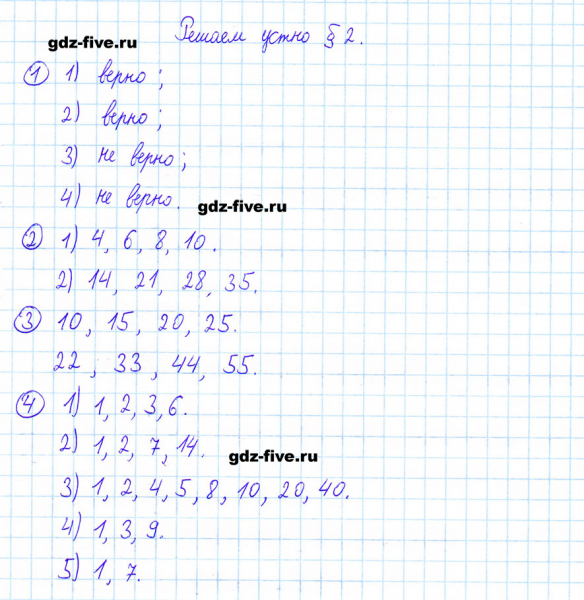 Решаем устно § 2.
gdz-five.ru
1 1) верно;
2) верно;
3) не верно;
4) не верно.
gdz-five.ru
2 1) 4, 6, 8, 10.
2) 14, 21, 28, 35.
3 10, 15, 20, 25.
22, 33, 44, 55.
4 1) 1, 2, 3, 6.
2) 1, 2, 7, 14.
gdz-five.ru
3) 1, 2, 4, 5, 8, 10, 20, 40.
4) 1, 3, 9.
5) 1, 7.